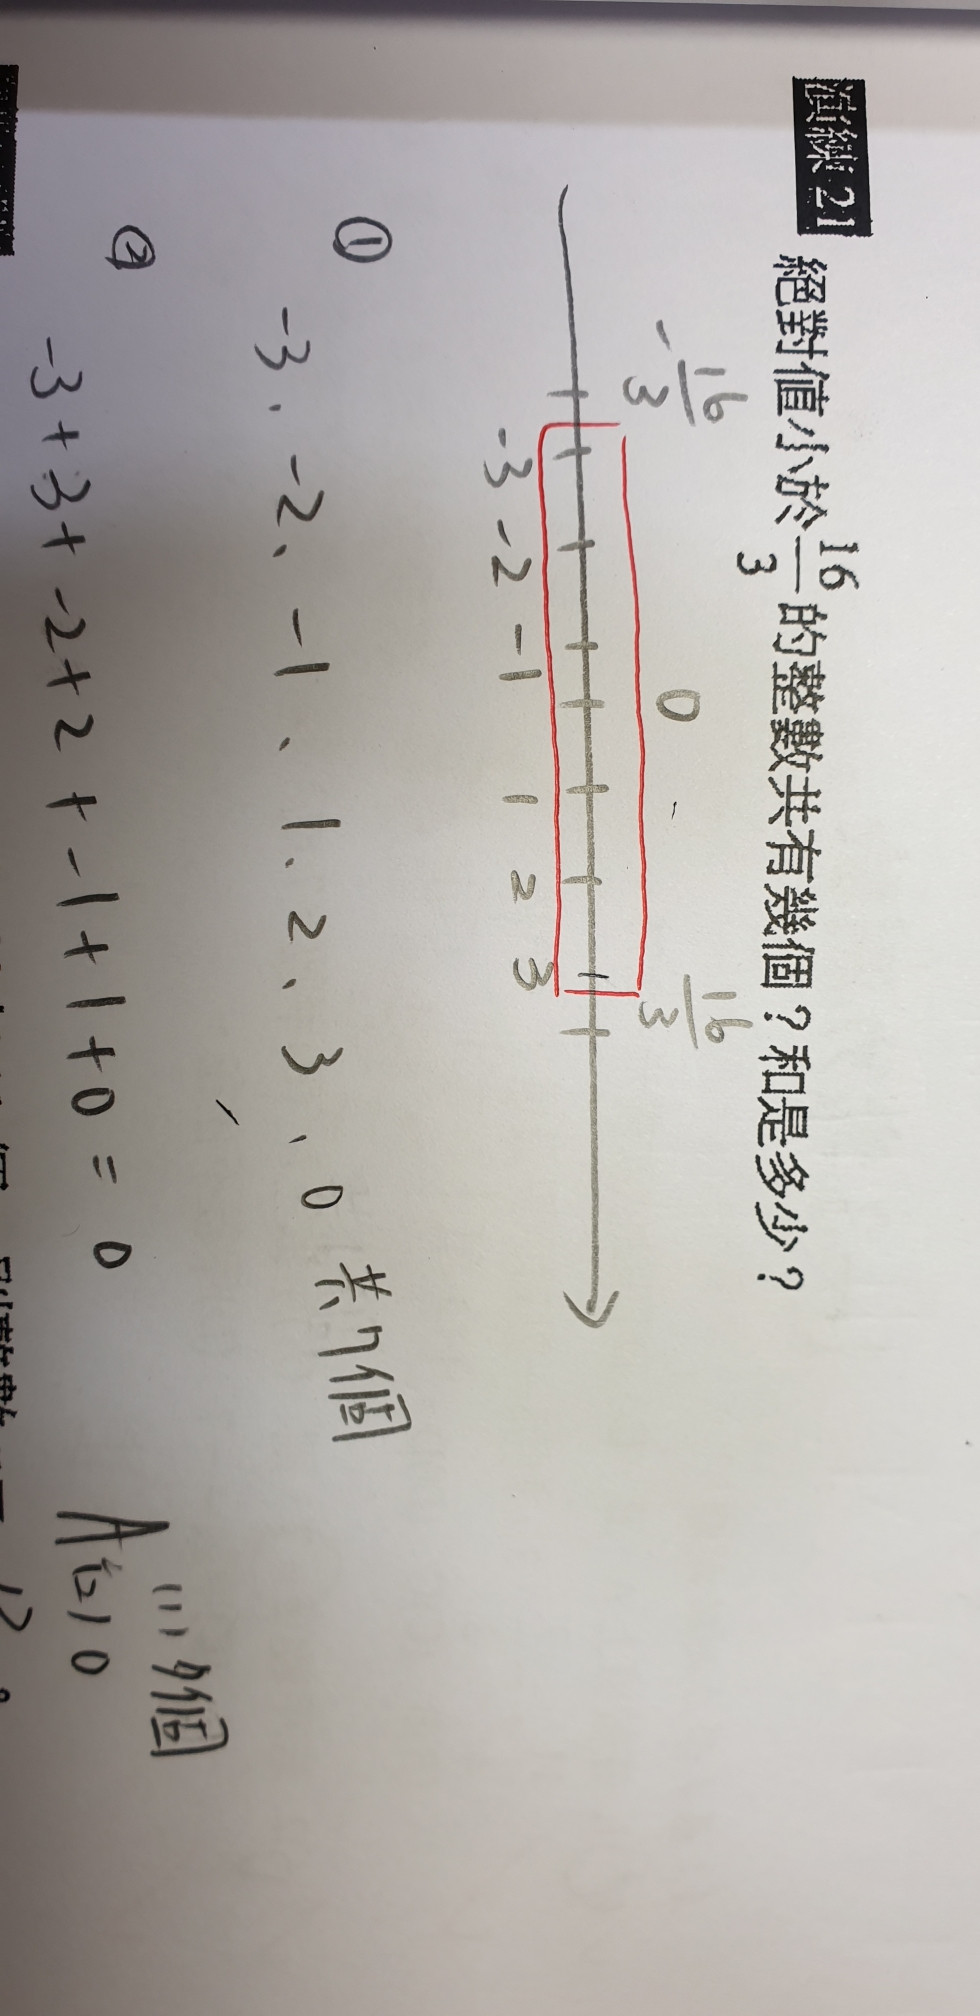 演練 21 絕對值小於 16/3 的整數共有幾個？和是多少？
-16/3 0 16/3
-3 -2 -1 1 2 3
① -3、-2、-1、1、2、3、0 共7個
② -3+3+-2+2+-1+1+0=0
A (1) 7個
(2) 0